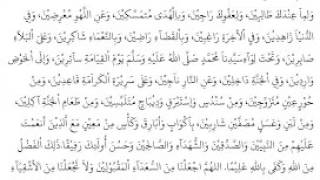 وَلِمَا عِنْدَكَ طَالِبِيْنَ، وَلِعَفْوِكَ رَاجِيْنَ، وَبِالْهُدَى مُتَمَسِّكِيْنَ، وَعَنِ اللَّهْوِ مُعْرِضِيْنَ، وَفِي
الدُّنْيَا زَاهِدِيْنَ، وَفِي الْآخِرَةِ رَاغِبِيْنَ، وَبِالْقَضَآءِ رَاضِيْنَ، وَبِالنَّعْمَآءِ شَاكِرِيْنَ، وَعَلَى الْبَلَآءِ
صَابِرِيْنَ، وَتَحْتَ لِوَآءِ سَيِّدِنَا مُحَمَّدٍ صَلَّى اللهُ عَلَيْهِ وَسَلَّمَ يَوْمَ الْقِيَامَةِ سَآئِرِيْنَ، وَإِلَى الْحَوْضِ
وَارِدِيْنَ، وَفِي الْجَنَّةِ دَاخِلِيْنَ، وَمِنَ النَّارِ نَاجِيْنَ، وَعَلَى سَرِيْرَةِ الْكَرَامَةِ قَاعِدِيْنَ، وَمِنْ
حُوْرٍعِيْنٍ مُتَزَوِّجِيْنَ، وَمِنْ سُنْدُسٍ وَاِسْتَبْرَقٍ وَدِيْبَاجٍ مُتَلَبِّسِيْنَ، وَمِنْ طَعَامِ الْجَنَّةِ آكِلِيْنَ،
وَمِنْ لَبَنٍ وَعَسَلٍ مُصَفَّيْنِ شَارِبِيْنَ، بِأَكْوَابٍ وَأَبَارِيْقَ وَكَأْسٍ مِنْ مَعِيْنٍ مَعَ الَّذِيْنَ أَنْعَمْتَ
عَلَيْهِمْ مِنَ النَّبِيِّيْنَ وَالصِّدِّيْقِيْنَ وَالشُّهَدَآءِ وَالصَّالِحِيْنَ وَحَسُنَ أُولَئِكَ رَفِيْقًا ذَلِكَ الْفَضْلُ
مِنَ اللهِ وَكَفَى بِاللهِ عَلِيْمًا، اللهم اجْعَلْنَا مِنَ السُّعَدَآءِ الْمَقْبُوْلِيْنَ وَلَا تَجْعَلْنَا مِنَ الْأَشْقِيَآءِ